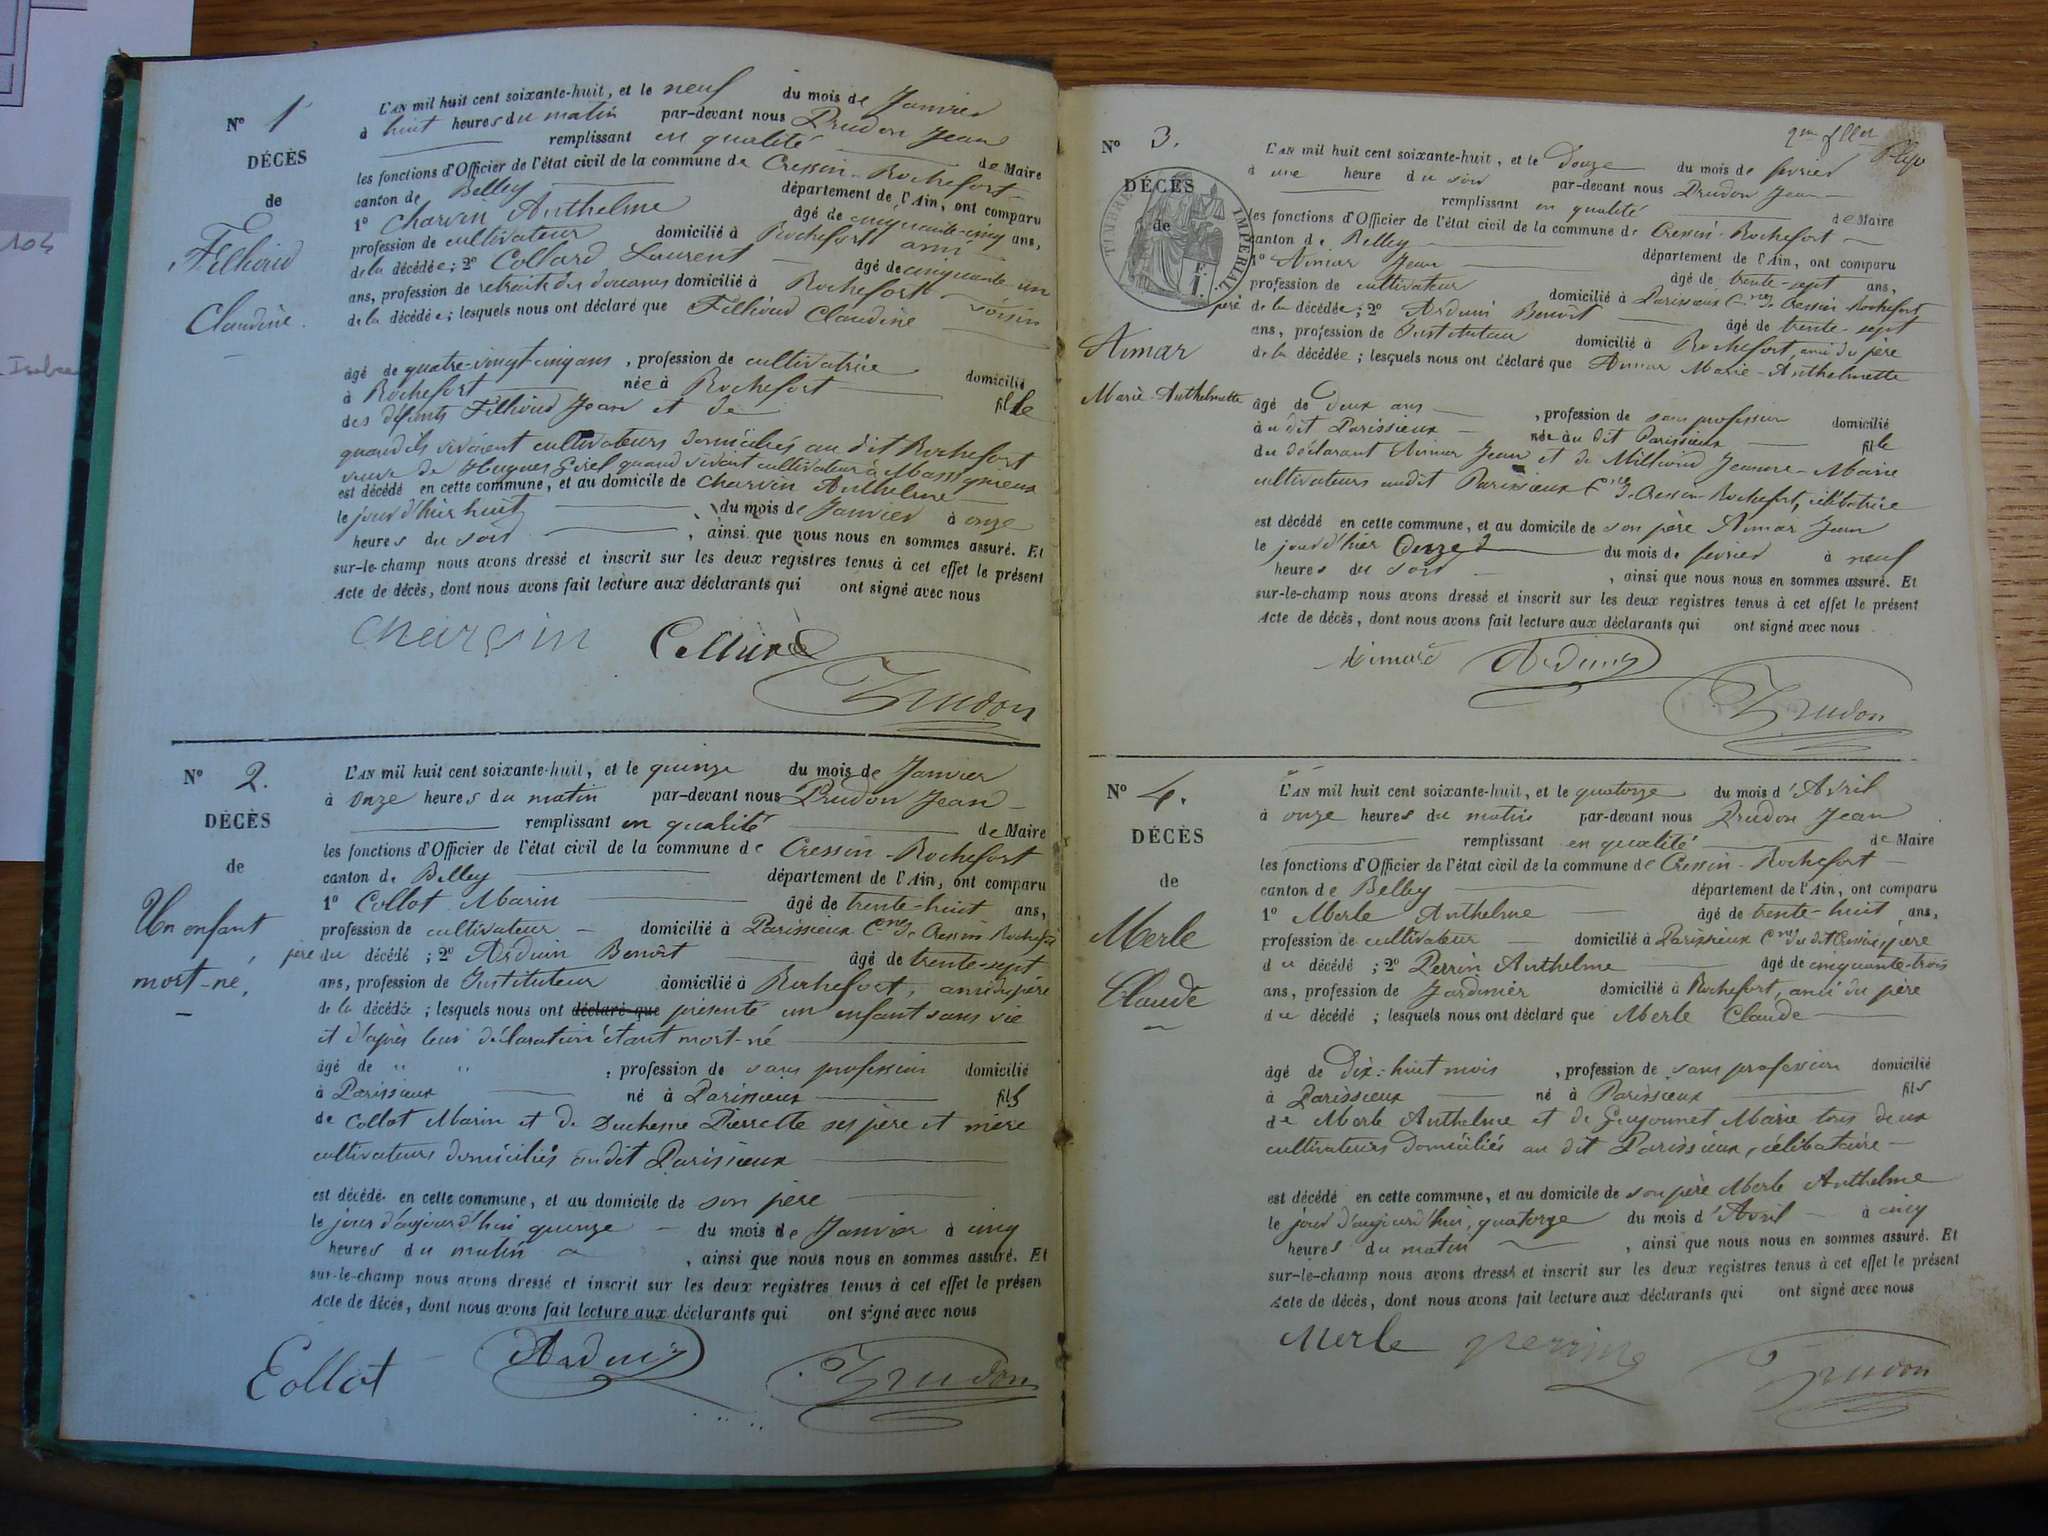 104
N° 1
DÉCÈS
de
Filliond
Claudine.
L'AN mil huit cent soixante-huit, et le neuf du mois de Janvier
à huit heures du matin par-devant nous Prudon Jean
remplissant en qualité de Maire
les fonctions d'Officier de l'état civil de la commune de Cressin-Rochefort
canton de Belley département de l'Ain, ont comparu
1° Charvin Anthelme âgé de cinquante-cinq ans,
profession de cultivateur domicilié à Rochefort ami
de la décédée; 2° Collard Laurent âgé de cinquante-un
ans, profession de retraité des douanes domicilié à Rochefort voisin
de la décédée; lesquels nous ont déclaré que Filliond Claudine
âgé de quatre-vingt-cinq ans, profession de cultivatrice domicilié
à Rochefort née à Rochefort fille
des défunts Filliond Jean et de
quand ils vivaient cultivateurs domiciliés au dit Rochefort
veuve de Hugues quand vivait cultivateur à Massignieux
est décédé en cette commune, et au domicile de Charvin Anthelme
le jour d'hier huit du mois de Janvier à onze
heures du soir, ainsi que nous nous en sommes assuré. Et
sur-le-champ nous avons dressé et inscrit sur les deux registres tenus à cet effet le présent
Acte de décès, dont nous avons fait lecture aux déclarants qui ont signé avec nous
Charvin Collard
Prudon
N° 2.
DÉCÈS
de
Un enfant
mort-né,
L'AN mil huit cent soixante-huit, et le quinze du mois de Janvier
à onze heures du matin par-devant nous Prudon Jean
remplissant en qualité de Maire
les fonctions d'Officier de l'état civil de la commune de Cressin-Rochefort
canton de Belley département de l'Ain, ont comparu
1° Collot Marin âgé de trente-huit ans,
profession de cultivateur domicilié à Parissieux Cne de Cressin-Rochefort
père du décédé; 2° Arduin Benoît âgé de trente-sept
ans, profession de Instituteur domicilié à Rochefort, ami du père
de la décédée; lesquels nous ont déclaré que présenté un enfant sans vie
et d'après leur déclaration étant mort-né
âgé de " " : profession de sans profession domicilié
à Parissieux né à Parissieux fils
de Collot Marin et de Duchesne Pierrette ses père et mère
cultivateurs domiciliés au dit Parissieux
est décédé en cette commune, et au domicile de son père
le jour d'aujourd'hui quinze du mois de Janvier à cinq
heures du matin, ainsi que nous nous en sommes assuré. Et
sur-le-champ nous avons dressé et inscrit sur les deux registres tenus à cet effet le présen
Acte de décès, dont nous avons fait lecture aux déclarants qui ont signé avec nous
Collot Arduin Prudon
N° 3.
DÉCÈS
de
TIMBRE IMPERIAL
F.
1.
Aimar
Marie-Anthelmette
L'AN mil huit cent soixante-huit, et le Douze du mois de février
à une heure du soir par-devant nous Prudon Jean
remplissant en qualité de Maire
les fonctions d'Officier de l'état civil de la commune de Cressin-Rochefort
canton de Belley département de l'Ain, ont comparu
1° Aimar Jean âgé de trente-sept ans,
profession de cultivateur domicilié à Parissieux Cne de Cressin-Rochefort
père de la décédée; 2° Arduin Benoît âgé de trente-sept
ans, profession de Instituteur domicilié à Rochefort, ami du père
de la décédée; lesquels nous ont déclaré que Aimar Marie-Anthelmette
âgé de deux ans, profession de sans profession domicilié
à u dit Parissieux née au dit Parissieux fille
du déclarant Aimar Jean et de Milliond Jeanne-Marie
cultivateurs au dit Parissieux Cne de Cressin-Rochefort, célibatrice
est décédé en cette commune, et au domicile de son père Aimar Jean
le jour d'hier onze du mois de février à neuf
heures du soir, ainsi que nous nous en sommes assuré. Et
sur-le-champ nous avons dressé et inscrit sur les deux registres tenus à cet effet le présent
Acte de décès, dont nous avons fait lecture aux déclarants qui ont signé avec nous
Aimard Arduin
Prudon
N° 4.
DÉCÈS
de
Merle
Claude
L'AN mil huit cent soixante-huit, et le quatorze du mois d'Avril
à onze heures du matin par-devant nous Prudon Jean
remplissant en qualité de Maire
les fonctions d'Officier de l'état civil de la commune de Cressin-Rochefort
canton de Belley département de l'Ain, ont comparu
1° Merle Anthelme âgé de trente-huit ans,
profession de cultivateur domicilié à Parissieux Cne du dit Cressin, père
du décédé; 2° Perrin Anthelme âgé de cinquante-trois
ans, profession de Jardinier domicilié à Rochefort, ami du père
du décédé; lesquels nous ont déclaré que Merle Claude
âgé de dix-huit mois, profession de sans profession domicilié
à Parissieux né à Parissieux fils
de Merle Anthelme et de Guyonnet Marie tous deux
cultivateurs domiciliés au dit Parissieux, célibataire
est décédé en cette commune, et au domicile de son père Merle Anthelme
le jour d'aujourd'hui, quatorze du mois d'Avril à cinq
heures du matin, ainsi que nous nous en sommes assuré. Et
sur-le-champ nous avons dressé et inscrit sur les deux registres tenus à cet effet le présent
Acte de décès, dont nous avons fait lecture aux déclarants qui ont signé avec nous
Merle perrin Prudon